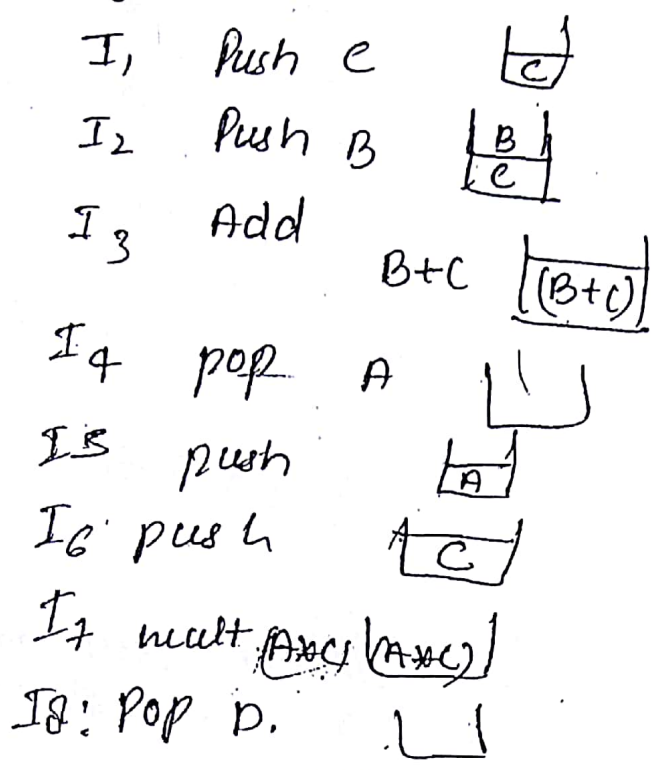 I1 Push C C
I2 Push B B
C
I3 Add
B+C (B+C)
I4 pop A
I5 push A
I6 push A C
I7 mult (A*C) (A*C)
I8: Pop D.